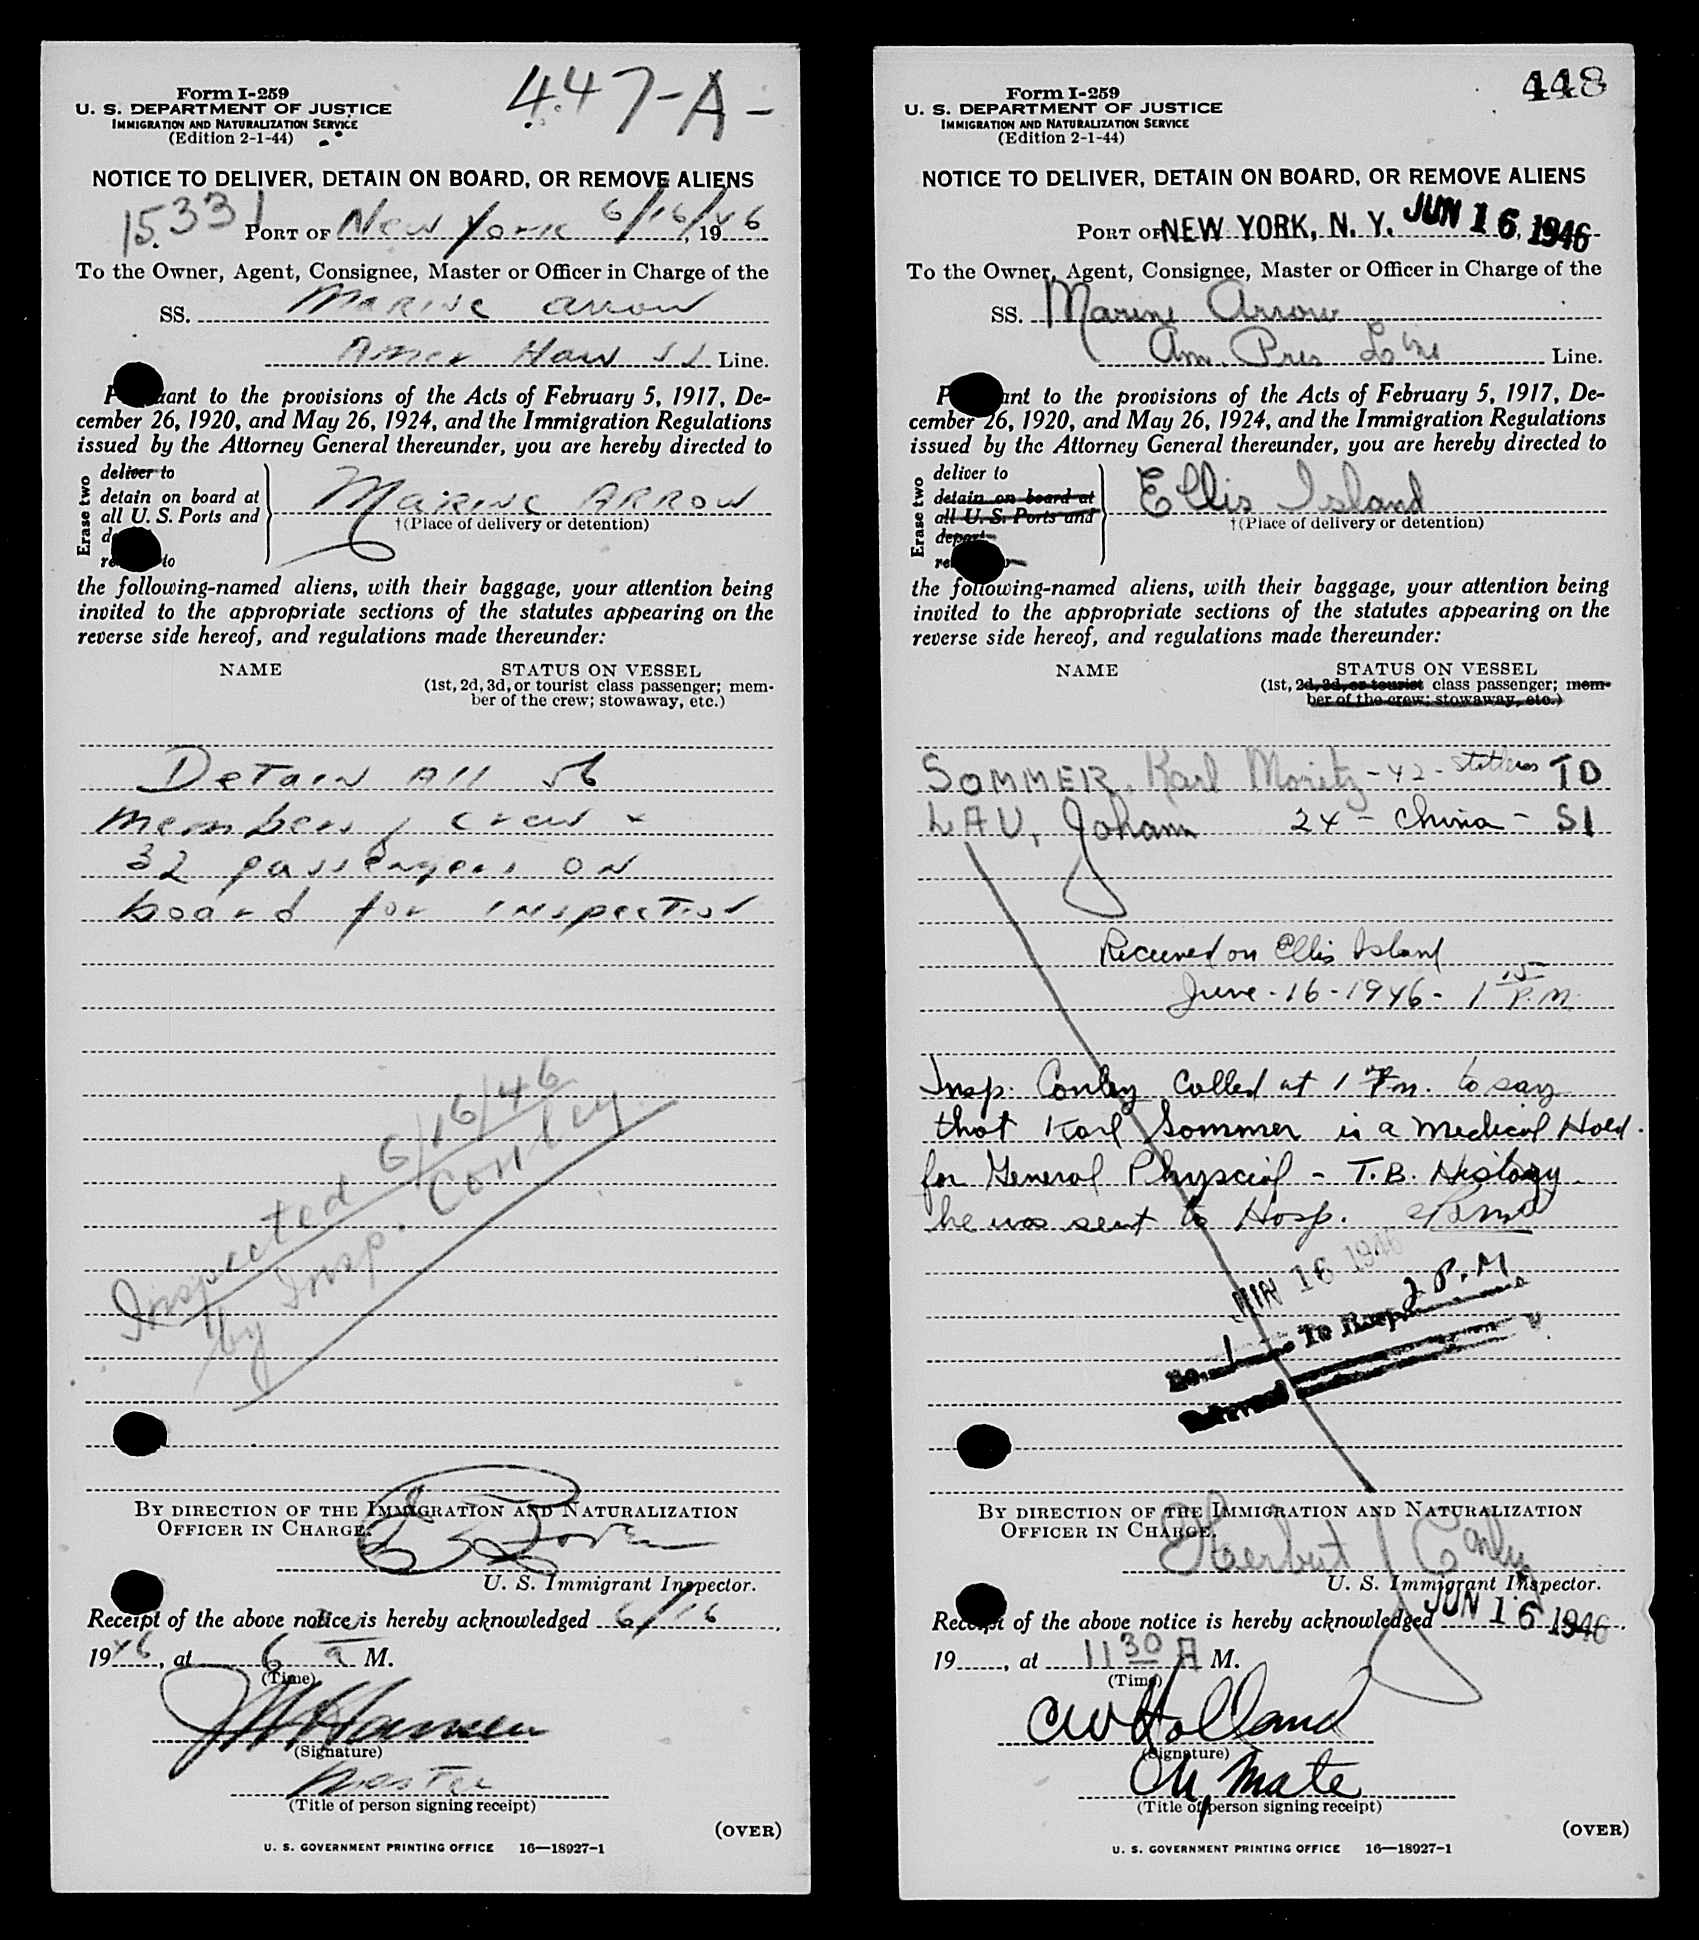 Form I-259
U. S. DEPARTMENT OF JUSTICE
IMMIGRATION AND NATURALIZATION SERVICE
(Edition 2-1-44)
447-A-
NOTICE TO DELIVER, DETAIN ON BOARD, OR REMOVE ALIENS
15331
PORT OF New York 6/16/46, 1946
To the Owner, Agent, Consignee, Master or Officer in Charge of the
SS. Marine Arrow
Amer Haw SS Line.
Pursuant to the provisions of the Acts of February 5, 1917, De-
cember 26, 1920, and May 26, 1924, and the Immigration Regulations
issued by the Attorney General thereunder, you are hereby directed to
Erase two
deliver to
detain on board at
all U. S. Ports and
to
MARINE ARROW
†(Place of delivery or detention)
the following-named aliens, with their baggage, your attention being
invited to the appropriate sections of the statutes appearing on the
reverse side hereof, and regulations made thereunder:
NAME
STATUS ON VESSEL
(1st, 2d, 3d, or tourist class passenger; mem-
ber of the crew; stowaway, etc.)
Detain All 56
members crew +
32 passengers on
board for inspection
Inspected 6/16/46
by Insp. Conley
BY DIRECTION OF THE IMMIGRATION AND NATURALIZATION
OFFICER IN CHARGE.
U. S. Immigrant Inspector.
Receipt of the above notice is hereby acknowledged 6/16,
1946, at 6 a M.
(Time)
(Signature)
Master
(Title of person signing receipt)
(OVER)
U. S. GOVERNMENT PRINTING OFFICE 16—18927-1
Form I-259
U. S. DEPARTMENT OF JUSTICE
IMMIGRATION AND NATURALIZATION SERVICE
(Edition 2-1-44)
448
NOTICE TO DELIVER, DETAIN ON BOARD, OR REMOVE ALIENS
PORT OF NEW YORK, N. Y. JUN 16, 1946
To the Owner, Agent, Consignee, Master or Officer in Charge of the
SS. Marine Arrow
Am. Pres Line Line.
Pursuant to the provisions of the Acts of February 5, 1917, De-
cember 26, 1920, and May 26, 1924, and the Immigration Regulations
issued by the Attorney General thereunder, you are hereby directed to
Erase two
deliver to
detain on board at
all U. S. Ports and
depart
Ellis Island
†(Place of delivery or detention)
the following-named aliens, with their baggage, your attention being
invited to the appropriate sections of the statutes appearing on the
reverse side hereof, and regulations made thereunder:
NAME
STATUS ON VESSEL
(1st, 2d, 3d, or tourist class passenger; mem-
ber of the crew; stowaway, etc.)
SOMMER, Karl Moritz - 42 - TD
LAU, Johann 24 - China - SI
Received on Ellis Island
June-16-1946- 1 15 P.M.
Insp. Conley Called at 1 P.m. to say
that Karl Sommer is a medical Hold.
for General Physcial - T.B. History
he was sent to Hosp.
JUN 16 1946
No. 1 To Hosp. 2 P.M
BY DIRECTION OF THE IMMIGRATION AND NATURALIZATION
OFFICER IN CHARGE.
Herbert J Conley
U. S. Immigrant Inspector.
Receipt of the above notice is hereby acknowledged JUN 16 1946.
19, at 11 30 A M.
(Time)
CW Holland
(Signature)
Ch, Mate
(Title of person signing receipt)
(OVER)
U. S. GOVERNMENT PRINTING OFFICE 16—18927-1